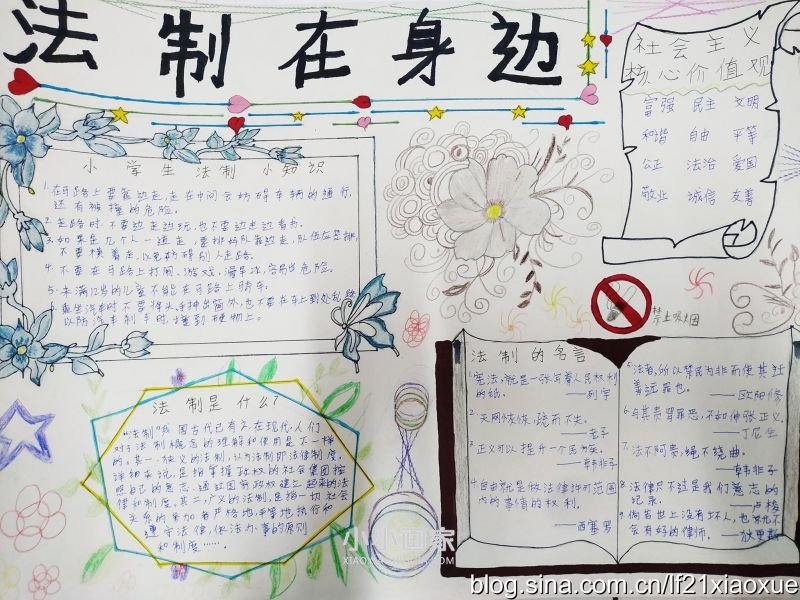 法制在身边
社会主义
核心价值观
富强 民主 文明
和谐 自由 平等
公正 法治 爱国
敬业 诚信 友善
小学生法制小知识
1.在马路上要靠边走,走在中间会妨碍车辆的通行,
还有被撞的危险。
2.走路时,不要边走边玩,也不要边走边看书。
3.如果是几个人一道走,要排好队靠边走,队伍
不要横着走,以免妨碍别人走路。
4.不要在马路上打闹、游戏,滑旱冰,容易出危险。
5.未满12岁的儿童不能在马路上骑车。
6.乘坐汽车时不要将头、手伸出窗外,也不要在车上到处乱跑
以防汽车刹车时,撞到硬物上。
禁止吸烟
法制的名言
1.宪法,就是一张写着人民权利
的纸。
——列宁
2.天网恢恢,疏而不失。
——老子
3.正义可以提升一个民族。
——韩非子
4.自由就是做法律许可范围
内的事情的权利。
——西塞罗
5.法者,所以禁民为非而使其迁
善远罪也。
——欧阳修
6.与其责骂罪恶,不如伸张正义。
——丁尼生
7.法不阿贵,绳不绕曲。
——韩非子
8.法律只不过是我们意志的
记录。
——卢梭
9.倘若世上没有坏人,也就不
会有好的律师。——狄更斯
法制是什么?
"法制"我国古代已有之,在现代,人们
对于法制概念的理解和使用是不一样
的,其一,狭义的法制,认为法制即法律制度。
详细来说,是指掌握政权的社会集团按
照自己的意志、通过国家政权建立起来的法
律和制度。其二,广义的法制,是指一切社会
关系的参加者严格地、平等地执行和
遵守法律,依法办事的原则
和制度……
小小画家
blog.sina.com.cn/lf21xiaoxue